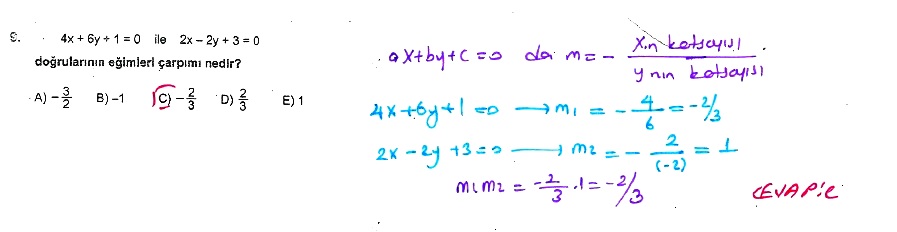 9. 4x + 6y + 1 = 0 ile 2x – 2y + 3 = 0
doğrularının eğimleri çarpımı nedir?
A) –3/2 B) –1 C) –2/3 D) 2/3 E) 1
ax+by+c=0 da m = – x.in katsayısı / y nin katsayısı
4x+6y+1=0 → m1 = – 4/6 = –2/3
2x – 2y +3=0 → m2 = – 2/(-2) = 1
m1m2 = –2/3 .1 = –2/3
CEVAP:C